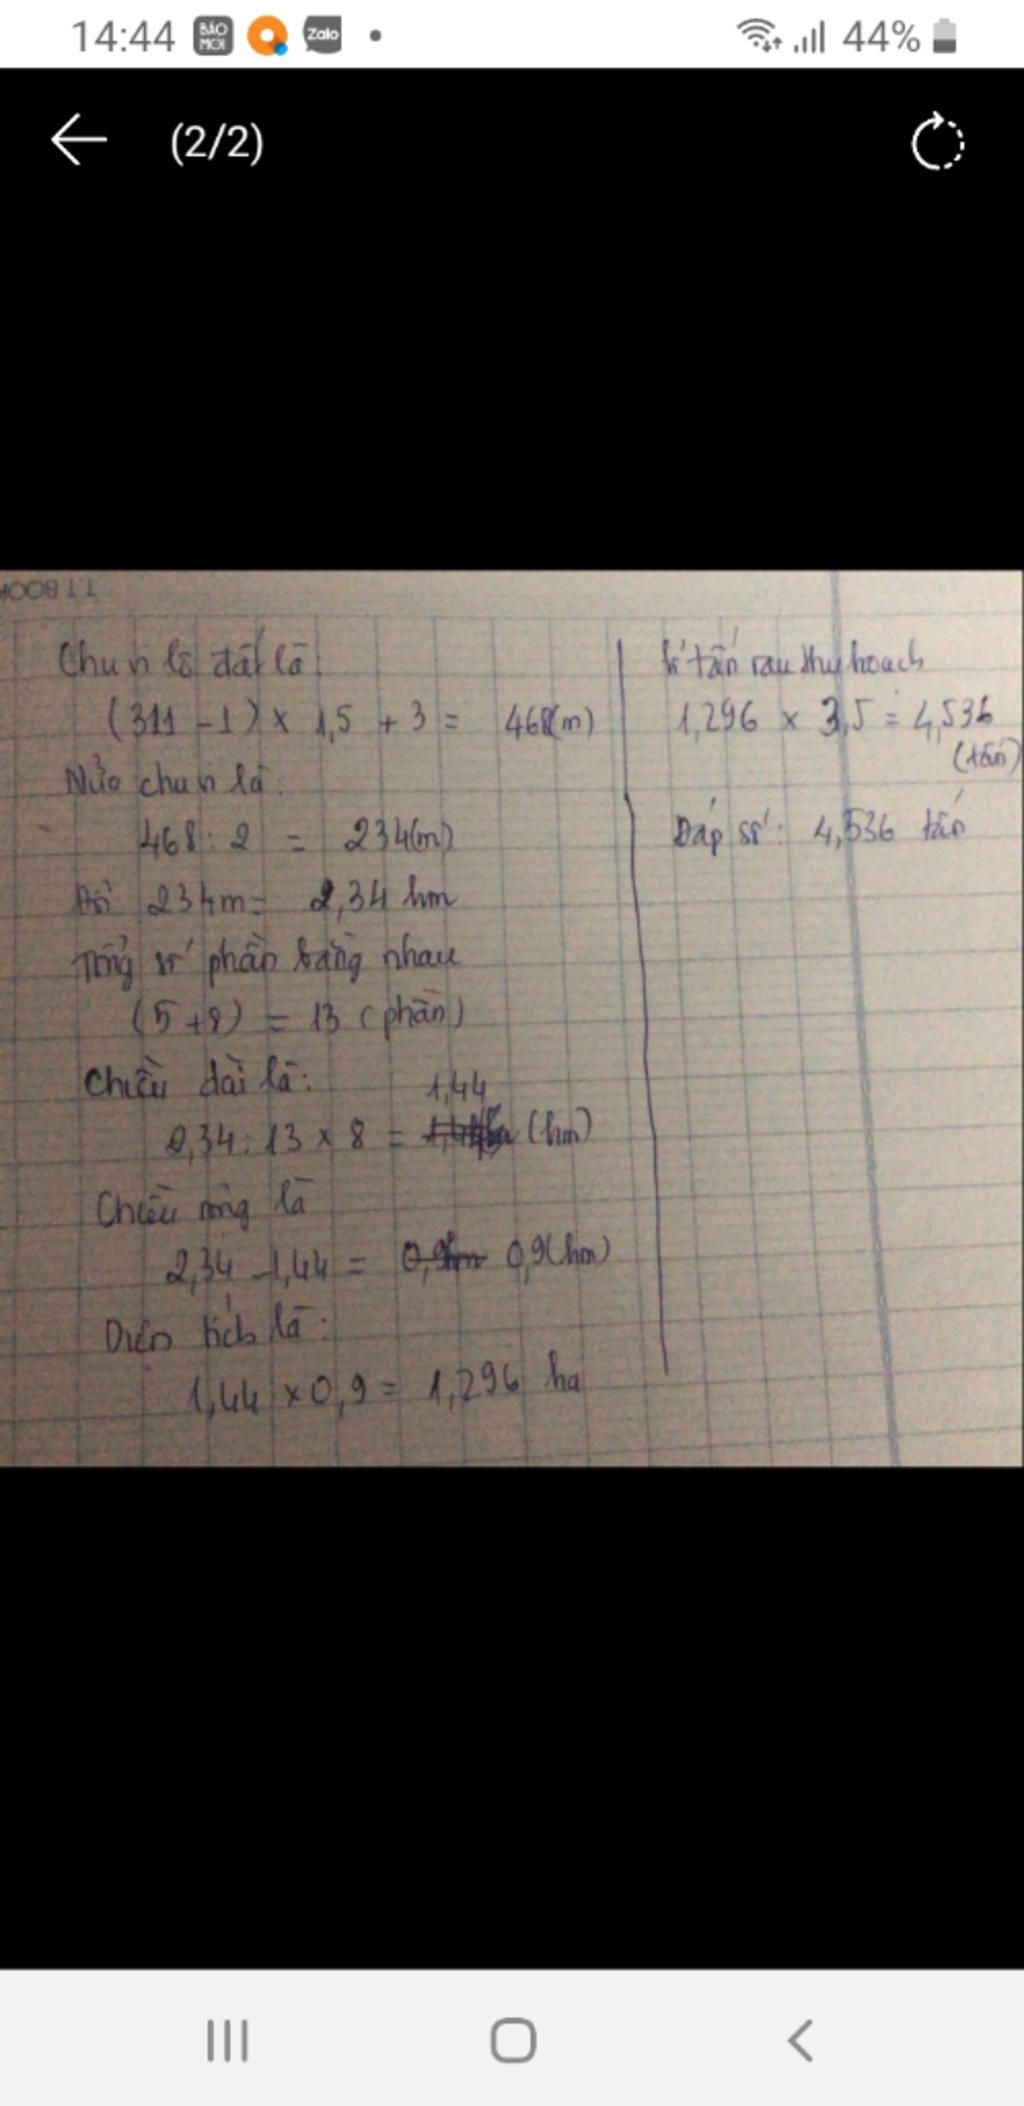 14:44 BÁO MỚI Zalo 44%
(2/2)
Chu vi lô đất là
(311 - 1) x 1,5 + 3 = 468(m)
Nửa chu vi là:
468 : 2 = 234(m)
Đổi 234m = 2,34 hm
Tổng số phần bằng nhau
(5+8) = 13 (phần)
Chiều dài là:
2,34 : 13 x 8 = 1,44 (hm)
Chiều rộng là
2,34 - 1,44 = 0,9(hm)
Diện tích là:
1,44 x 0,9 = 1,296 ha
Số tấn rau thu hoạch
1,296 x 3,5 = 4,536
(tấn)
Đáp số: 4,536 tấn